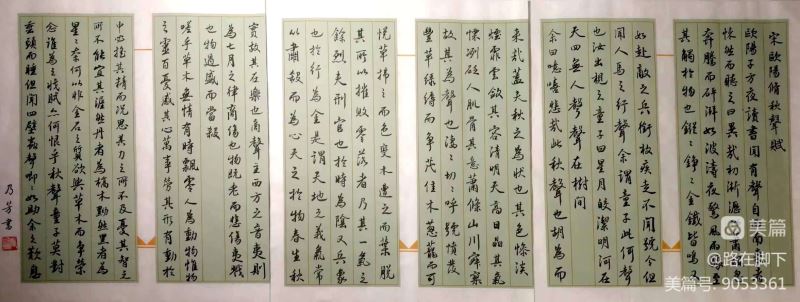 宋歐陽脩秋聲賦
歐陽子方夜讀書聞有聲自西南來
悚然而聽之曰異哉初淅瀝以蕭颯忽
奔騰而砰湃如波濤夜驚風雨驟至
其觸於物也鏦々錚々金鐵皆鳴又
如赴敵之兵銜枚疾走不聞號令但
聞人馬之行聲余謂童子此何聲
也汝出視之童子曰星月皎潔明河在
天四無人聲聲在樹間
余曰噫嘻悲哉此秋聲也胡為而
來哉蓋夫秋之為狀也其色慘淡
煙霏雲斂其容清明天高日晶其氣
慄冽砭人肌骨其意蕭條山川寂寥
故其為聲也淒々切々呼號憤發
豐草綠縟而爭茂佳木蔥蘢而可
悅草拂之而色變木遭之而葉脫
其所以摧敗零落者乃其一氣之
餘烈夫刑官也於時為陰又兵象
也於行為金是謂天地之義氣常
以肅殺而為心天之於物春生秋
實故其在樂也商聲主西方之音夷則
為七月之律商傷也物既老而悲傷夷戮
也物過盛而當殺
嗟乎草木無情有時飄零人為動物惟物
之靈百憂感其心萬事勞其形有動於
中必搖其精而況思其力之所不及憂其智之
所不能宜其渥然丹者為槁木黟然黑者為
星々奈何以非金石之質欲與草木而爭榮
念誰為之戕賊亦何恨乎秋聲童子莫對
垂頭而睡但聞四壁蟲聲唧々如助余之歎息
乃芳書
美篇
@路在脚下
美篇号: 9053361